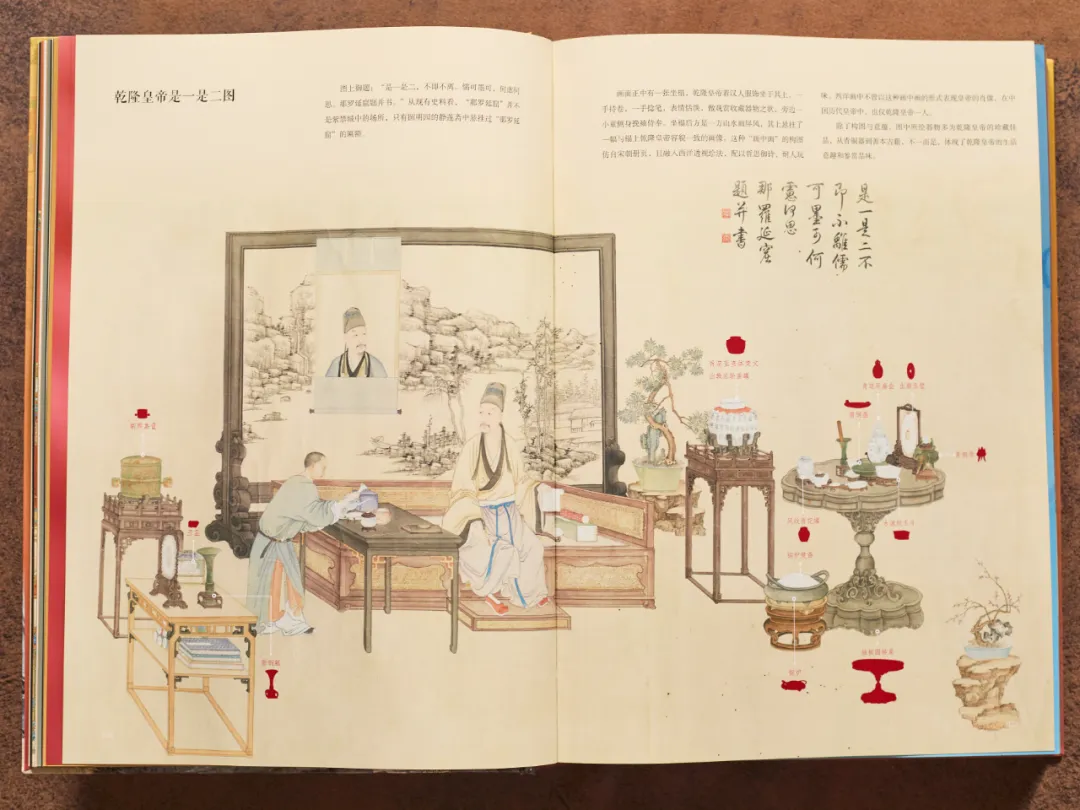 乾隆皇帝是一是二图
图上御题："是一是二，不即不离。儒可墨可，何虑何
思。那罗延窟题并书。"从现有史料看，"那罗延窟"并不
是紫禁城中的场所，只有圆明园的静莲斋中悬挂过"那罗延
窟"的匾额。
画面正中有一张坐榻，乾隆皇帝着汉人服饰坐于其上，一
手持卷，一手捻笔，表情恬淡，做观赏收藏器物之状，旁边一
小童侧身挽袖侍奉。坐榻后方是一古山水画屏风，其上悬挂了
一幅与榻上乾隆皇帝容貌一致的画像。这种"画中画"的构图
仿自宋朝册页，且融入西洋透视绘法，配以哲思御诗，耐人玩
味。西洋画中不曾以这种画中画的形式表现皇帝的肖像，在中
国历代皇帝中，也仅乾隆皇帝一人。
除了构图与意趣，图中所绘器物多为乾隆皇帝的珍藏佳
品，从青铜器到善本古籍，不一而足，体现了乾隆皇帝的生活
意趣和鉴赏品味。
是一是二不
即不離儒
可墨可何
慮何思
那羅延窟
題并書